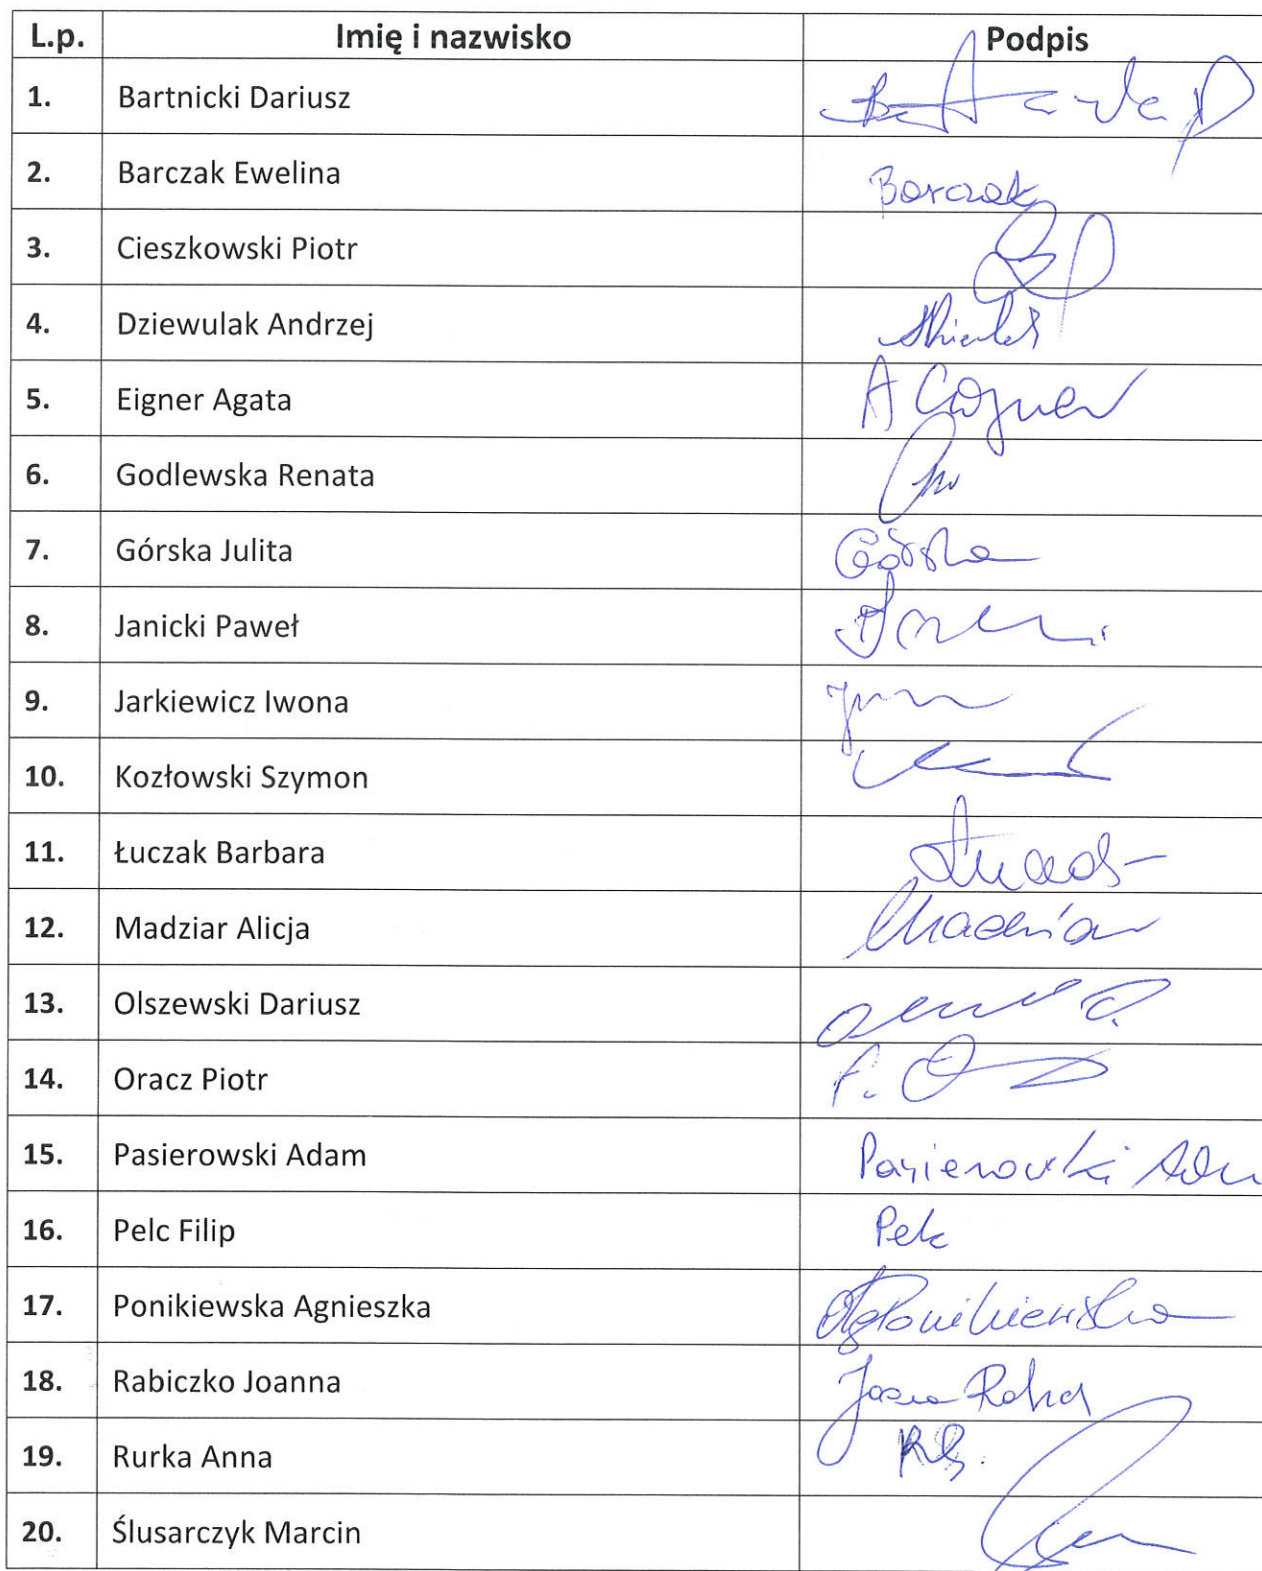 L.p. Imię i nazwisko Podpis
1. Bartnicki Dariusz
2. Barczak Ewelina Barczak
3. Cieszkowski Piotr
4. Dziewulak Andrzej
5. Eigner Agata A Eigner
6. Godlewska Renata
7. Górska Julita Górska
8. Janicki Paweł
9. Jarkiewicz Iwona
10. Kozłowski Szymon
11. Łuczak Barbara
12. Madziar Alicja Madziar
13. Olszewski Dariusz
14. Oracz Piotr
15. Pasierowski Adam Pasierowski Adam
16. Pelc Filip Pelc
17. Ponikiewska Agnieszka AgPonikiewska
18. Rabiczko Joanna
19. Rurka Anna
20. Ślusarczyk Marcin